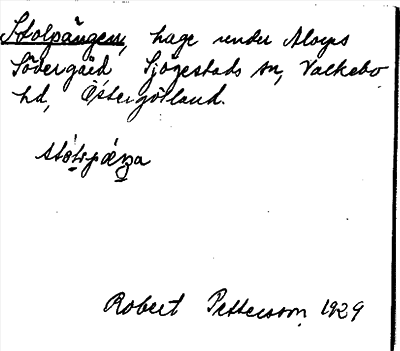 Stolpängen, hage under Moges
Södergård Sjögestads sn, Valkebo
hd, Östergötland.
Robert Pettersson 1929